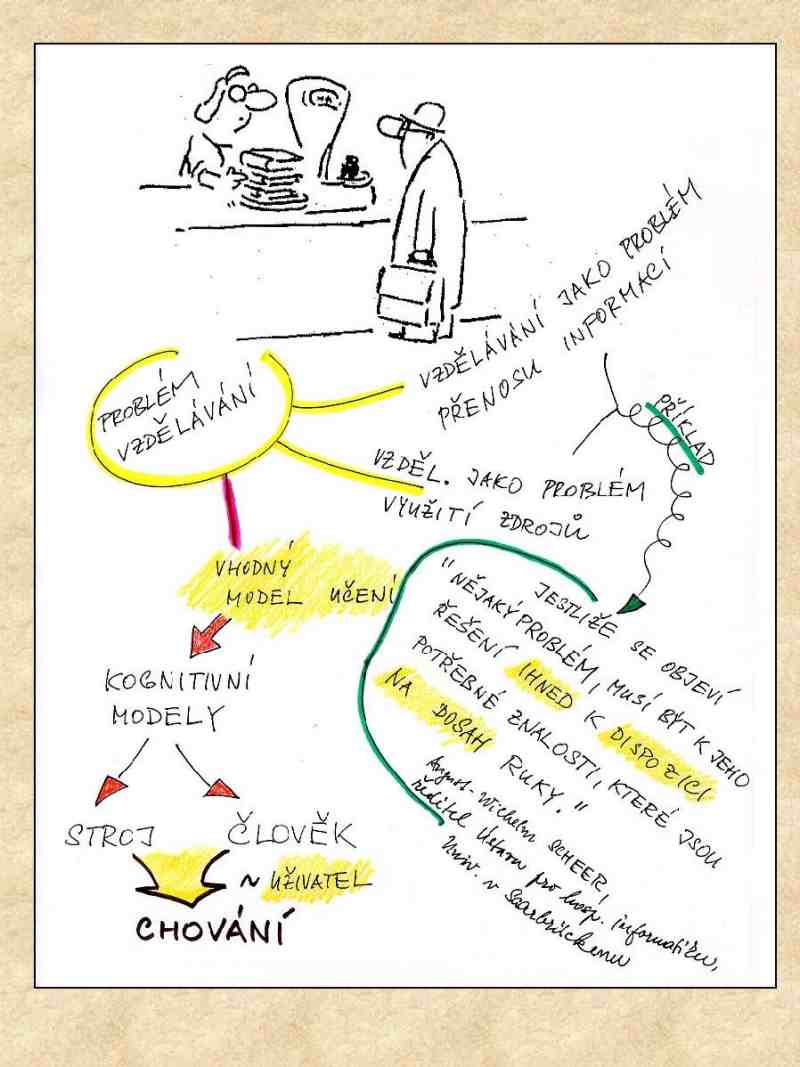 PROBLÉM
VZDĚLÁVÁNÍ
VZDĚLÁVÁNÍ JAKO PROBLÉM
PŘENOSU INFORMACÍ
VZDĚL. JAKO PROBLÉM
VYUŽITÍ ZDROJŮ
PŘÍKLAD
VHODNÝ
MODEL UČENÍ
KOGNITIVNÍ
MODELY
STROJ
ČLOVĚK
~ UŽIVATEL
CHOVÁNÍ
JESTLIŽE SE OBJEVÍ
"NĚJAKÝ PROBLÉM, MUSÍ BÝT K JEHO
ŘEŠENÍ IHNED K DISPOZICI
POTŘEBNÉ ZNALOSTI, KTERÉ JSOU
NA DOSAH RUKY."
August-Wilhelm SCHEER,
ředitel Ústavu pro hosp. informatiku,
Univ. v Saarbrückenu